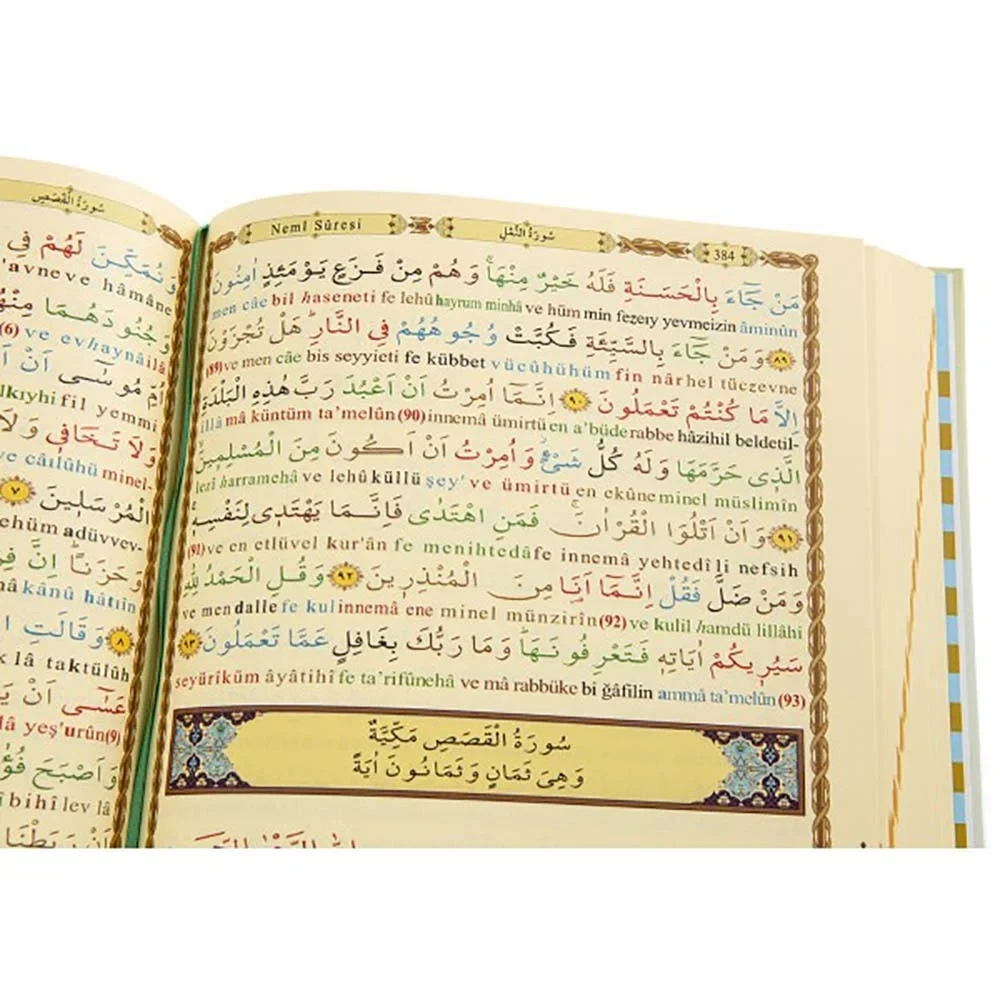 Neml Sûresi
سُورَةُ النَّمْلِ
384
مَنْ جَٓاءَ بِالْحَسَنَةِ فَلَهُ خَيْرٌ مِنْهَاۚ وَهُمْ مِنْ فَزَعٍ يَوْمَئِذٍ اٰمِنُونَ
men câe bil haseneti fe lehû hayrum minhâ ve hüm min fezeıy yevmeizin âminûn
﴿٨٩﴾ وَمَنْ جَٓاءَ بِالسَّيِّئَةِ فَكُبَّتْ وُجُوهُهُمْ فِي النَّارِۜ هَلْ تُجْزَوْنَ
(89) ve men câe bis seyyieti fe kübbet vücûhühüm fin nâr hel tüczevne
اِلَّا مَا كُنْتُمْ تَعْمَلُونَ ﴿٩٠﴾ اِنَّمَٓا اُمِرْتُ اَنْ اَعْبُدَ رَبَّ هٰذِهِ الْبَلْدَةِ
illâ mâ küntüm ta'melûn(90) innemâ ümirtü en a'büde rabbe hâzihil beldetil-
الَّذ۪ي حَرَّمَهَا وَلَهُ كُلُّ شَيْءٍۘ وَاُمِرْتُ اَنْ اَكُونَ مِنَ الْمُسْلِم۪ينَۙ
lezî harramehâ ve lehû küllü şey' ve ümirtü en ekûne minel müslimîn
﴿٩١﴾ وَاَنْ اَتْلُوَا الْقُرْاٰنَۚ فَمَنِ اهْتَدٰى فَاِنَّمَا يَهْتَد۪ي لِنَفْسِه۪ۚ
(91) ve en etlüvel kur'ân fe menihtedâ fe innemâ yehtedî li nefsih
وَمَنْ ضَلَّ فَقُلْ اِنَّمَٓا اَنَا۬ مِنَ الْمُنْذِر۪ينَ ﴿٩٢﴾ وَقُلِ الْحَمْدُ لِلّٰهِ
ve men dalle fe kul innemâ ene minel münzirîn(92) ve kulil hamdü lillâhi
سَيُر۪يكُمْ اٰيَاتِه۪ فَتَعْرِفُونَهَاۜ وَمَا رَبُّكَ بِغَافِلٍ عَمَّا تَعْمَلُونَ ﴿٩٣﴾
seyürîküm âyâtihî fe ta'rifûnehâ ve mâ rabbüke bi ğâfilin ammâ ta'melûn(93)
سُورَةُ الْقَصَصِ مَكِّيَّةٌ
وَهِيَ ثَمَانٍ وَثَمَانُونَ اٰيَةً
سُورَةُ الْقَصَصِ
وَنُمَكِّنَ لَهُمْ فِي
'avne ve hâmâne
وَجُنُودَهُمَا
(6) ve evhaynâ ilâ
اُمِّ مُوسٰٓى اَنْ
fil yemmi
وَلَا تَخَاف۪ي وَلَا
ve câılûhü minel-
الْمُرْسَل۪ينَ ﴿٧﴾
ehüm adüvvev-
وَحَزَنًاۜ اِنَّ
kânû hâtıîn
﴿٨﴾ وَقَالَتِ
lâ taktülûh
عَسٰٓى اَنْ
lâ yeş'urûn(9)
وَاَصْبَحَ
bihî lev lâ
اَنْ رَبَطْنَا